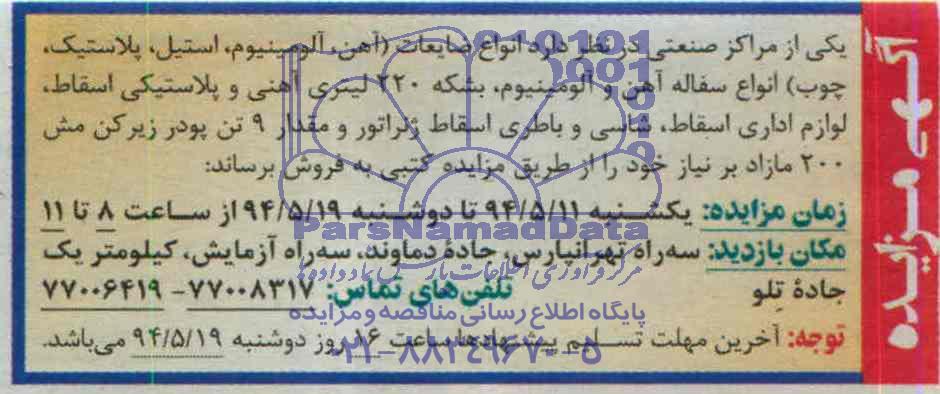 آگهی مزایده
یکی از مراکز صنعتی در نظر دارد انواع ضایعات (آهن، آلومینیوم، استیل، پلاستیک،
چوب) انواع سفاله آهن و آلومینیوم، بشکه ۲۲۰ لیتری آهنی و پلاستیکی اسقاط،
لوازم اداری اسقاط، شاسی و باطری اسقاط ژنراتور و مقدار ۹ تن پودر زیرکن مش
۲۰۰ مازاد بر نیاز خود را از طریق مزایده کتبی به فروش برساند:
زمان مزایده: یکشنبه ۹۴/۵/۱۱ تا دوشنبه ۹۴/۵/۱۹ از ساعت ۸ تا ۱۱
مکان بازدید: سه‌راه تهرانپارس، جادهٔ دماوند، سه‌راه آزمایش، کیلومتر یک
جادهٔ تلو تلفن‌های تماس: ۷۷۰۰۸۳۱۷- ۷۷۰۰۶۴۱۹
توجه: آخرین مهلت تسلیم پیشنهادها ساعت ۱۶ روز دوشنبه ۹۴/۵/۱۹ می‌باشد.
ParsNamadData
مرکز فرآوری اطلاعات پارس نماد داده‌ها
پایگاه اطلاع رسانی مناقصه و مزایده
۰۲۱-۸۸۳۴۹۶۷۰-۵